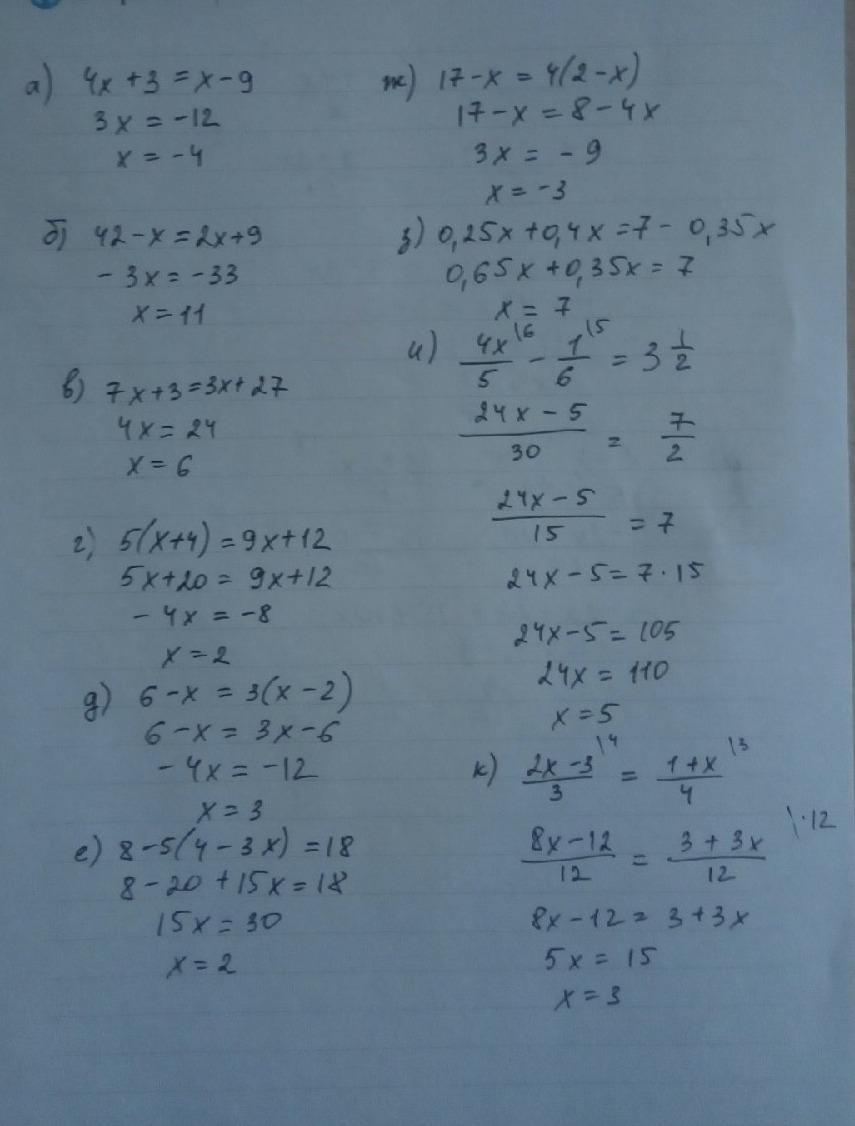 а) 4x + 3 = x - 9
3x = -12
x = -4
б) 42 - x = 2x + 9
- 3x = -33
x = 11
в) 7x + 3 = 3x + 27
4x = 24
x = 6
г) 5(x+4) = 9x + 12
5x + 20 = 9x + 12
- 4x = -8
x = 2
д) 6 - x = 3(x - 2)
6 - x = 3x - 6
- 4x = -12
x = 3
е) 8 - 5(4 - 3x) = 18
8 - 20 + 15x = 18
15x = 30
x = 2
ж) 17 - x = 4(2 - x)
17 - x = 8 - 4x
3x = - 9
x = -3
з) 0,25x + 0,4x = 7 - 0,35x
0,65x + 0,35x = 7
x = 7
и) 4x/5 \6 - 1/6 \5 = 3 1/2
24x - 5/30 = 7/2
24x - 5/15 = 7
24x - 5 = 7 · 15
24x - 5 = 105
24x = 110
x = 5
к) 2x - 3/3 \4 = 1 + x/4 \3
8x - 12/12 = 3 + 3x/12 \·12
8x - 12 = 3 + 3x
5x = 15
x = 3